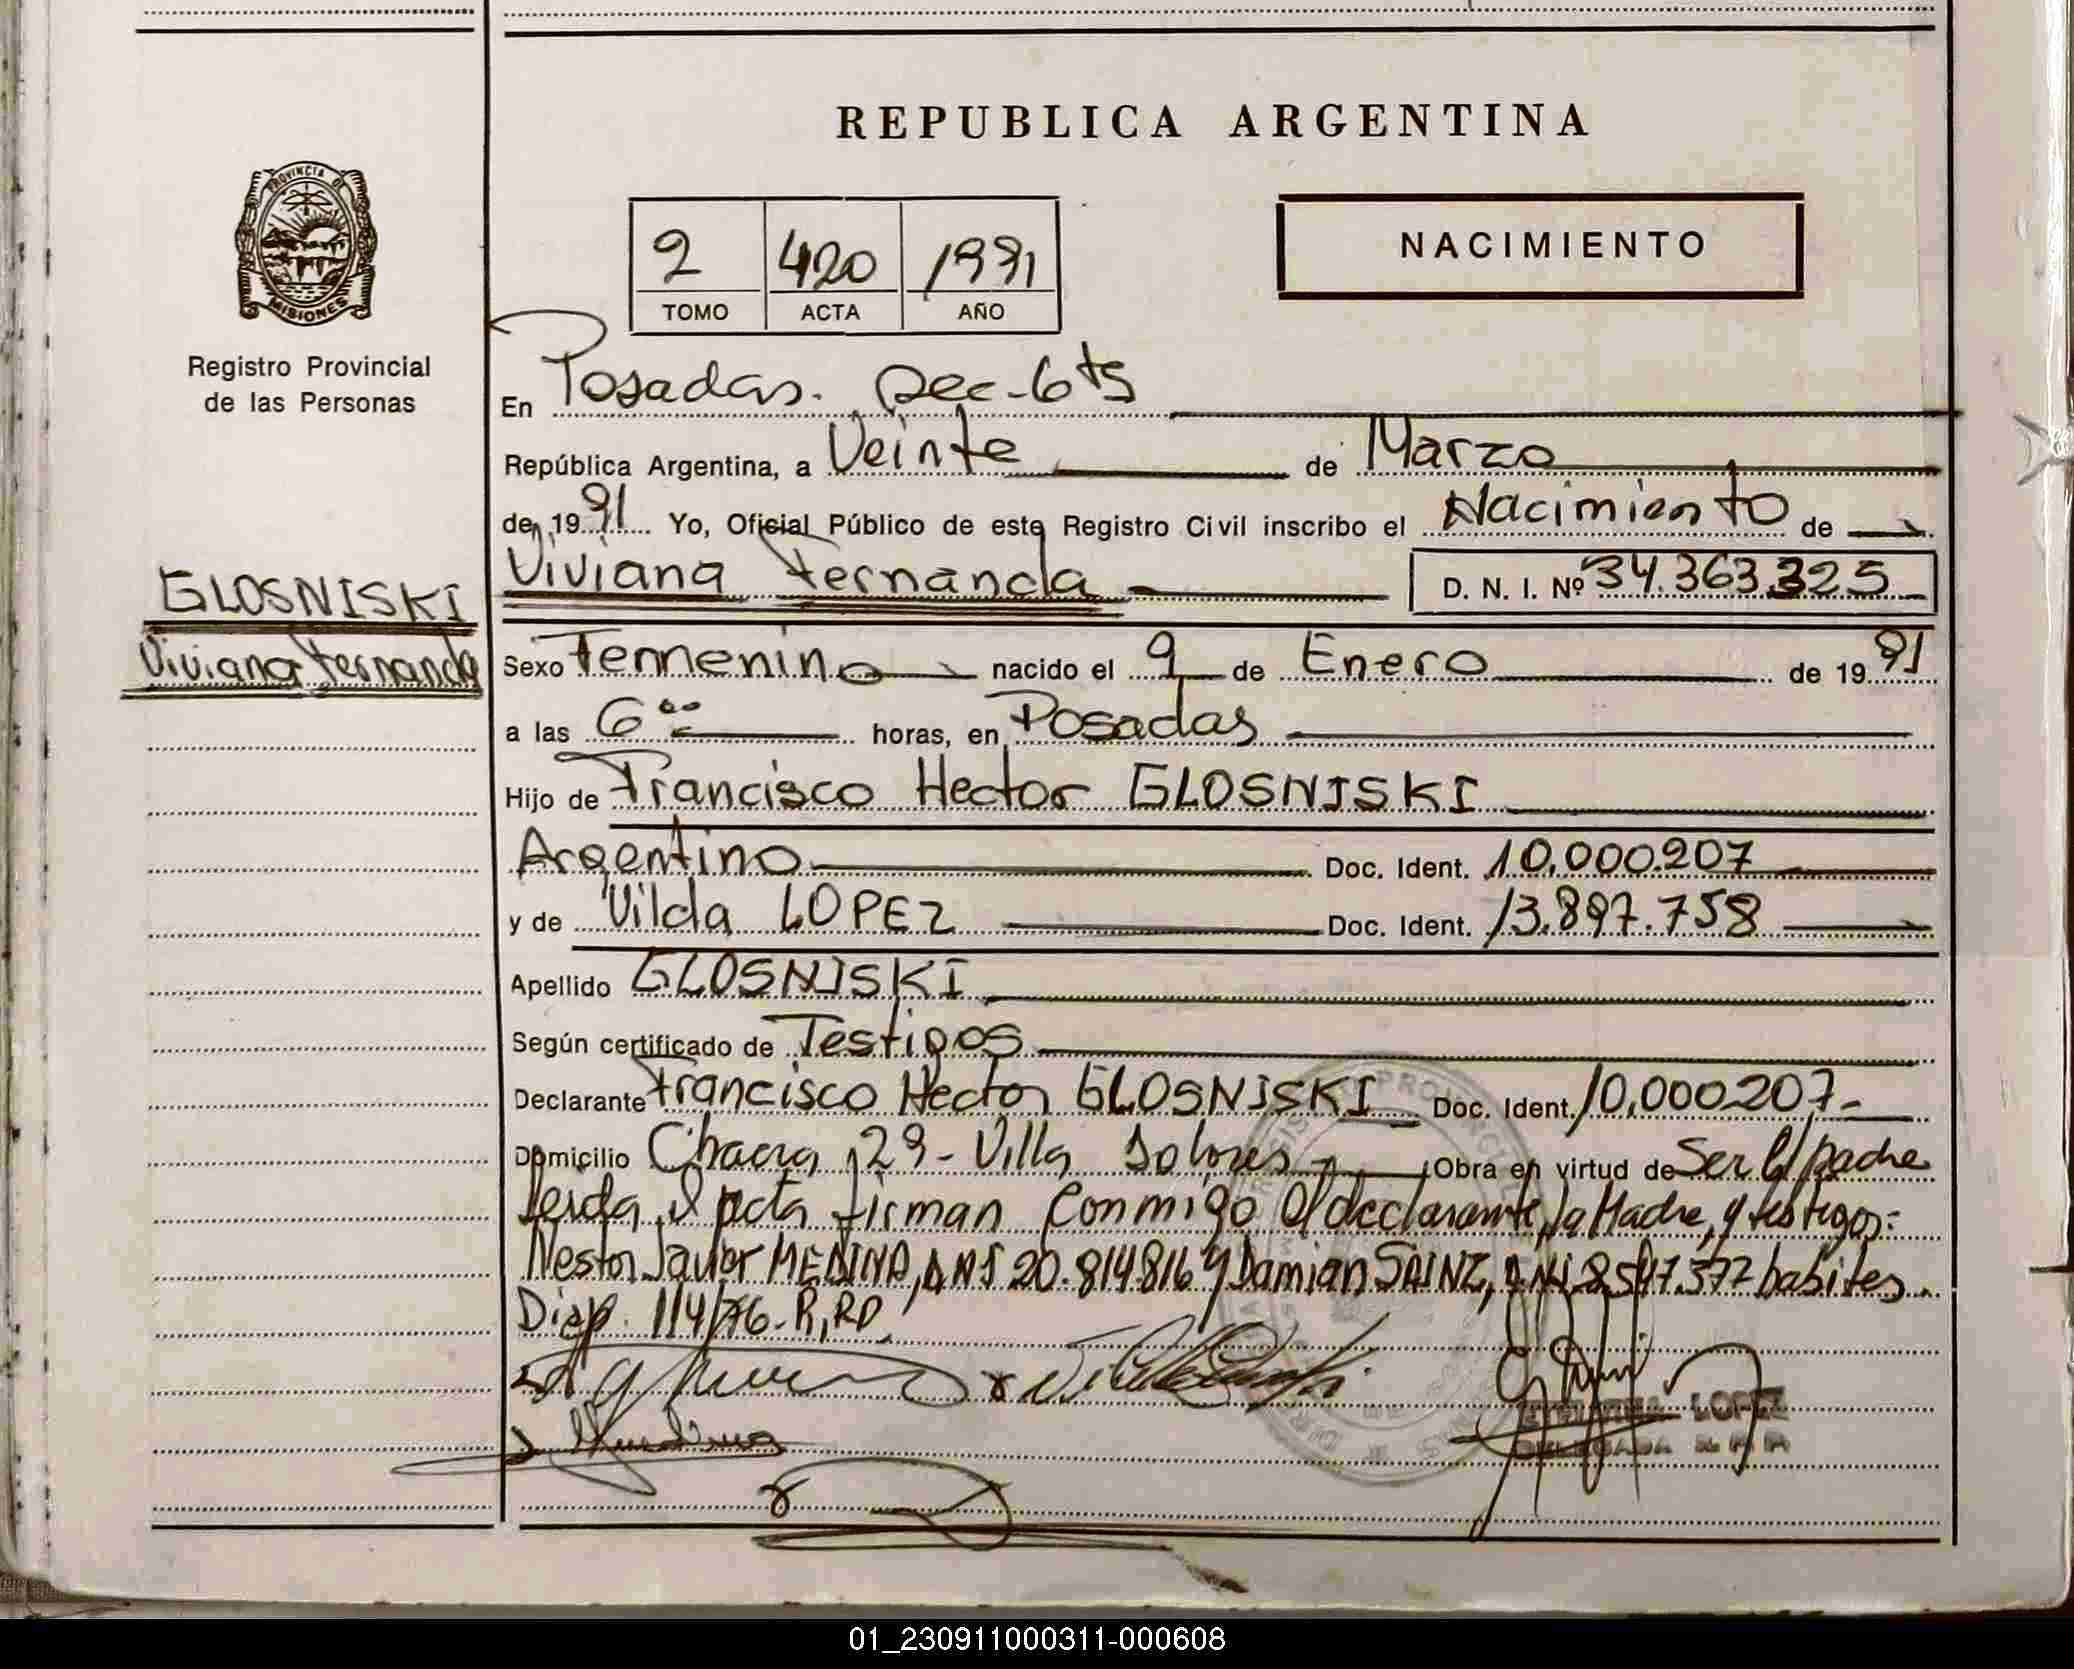 REPUBLICA ARGENTINA
PROVINCIA DE
MISIONES
Registro Provincial
de las Personas
2 420 1991
TOMO ACTA AÑO
NACIMIENTO
En Posadas. Sec-6ta
República Argentina, a Veinte de Marzo
de 1991 Yo, Oficial Público de este Registro Civil inscribo el Nacimiento de
Viviana Fernanda D. N. I. Nº 34.363.325
GLOSNISKI
Viviana Fernanda
Sexo Femenino nacido el 9 de Enero de 1991
a las 6 00 horas, en Posadas
Hijo de Francisco Hector GLOSNISKI
Argentino Doc. Ident. 10.000.207
y de Vilda LOPEZ Doc. Ident. 13.897.758
Apellido GLOSNISKI
Según certificado de Testigos
Declarante Francisco Hector GLOSNISKI Doc. Ident. 10.000.207-
Domicilio Chacra 29- Villa Dolores Obra en virtud de Ser el padre
Leida el acta firman conmigo el declarante, la Madre, y testigos:
Nestor Javier MEDINA, DNI 20.814816 y Damian SAINZ, DNI 8.547.377 habites.
Disp. 114/76-R,RP.
LOPEZ
DELEGADA
01_230911000311-000608